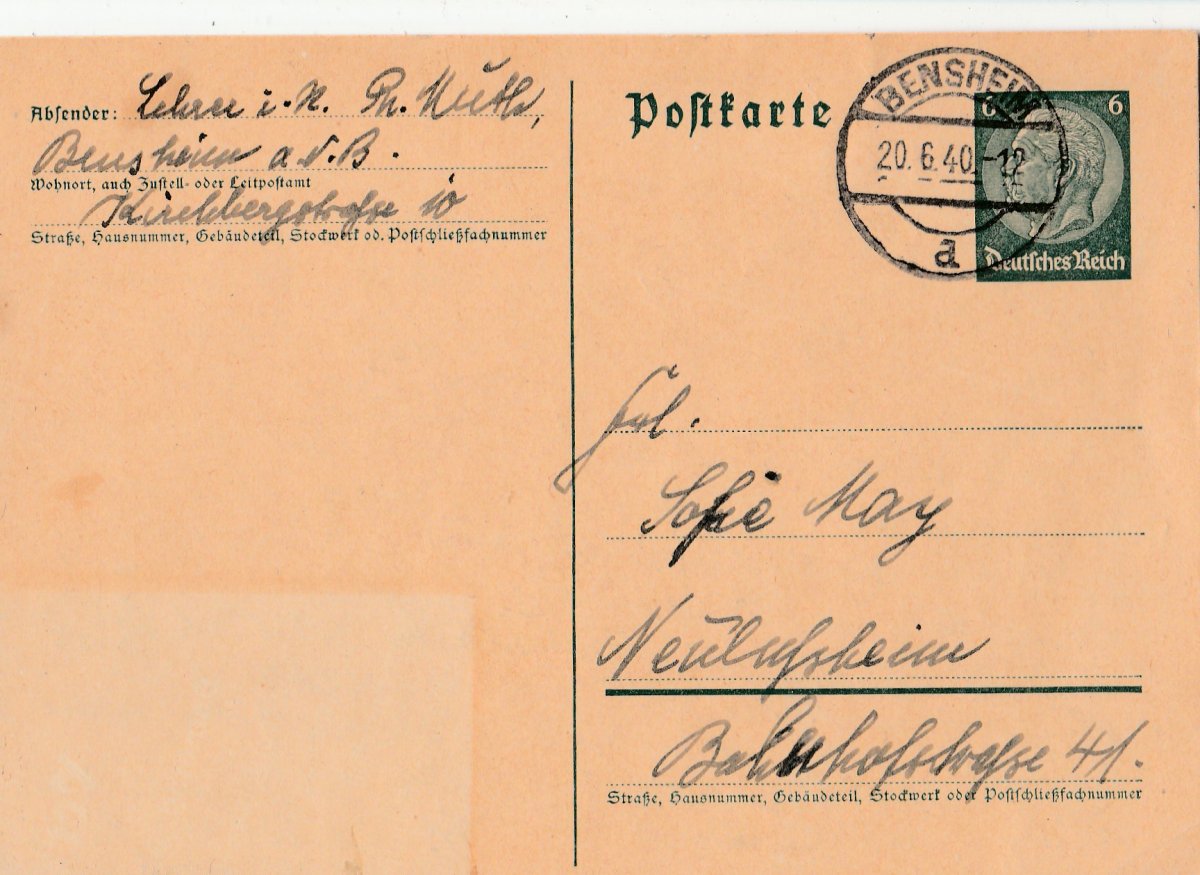 Absender: Lehrer i. R. Ph. Muth,
Bensheim a. d. B.
Wohnort, auch Zustell- oder Leitpostamt
Kirchbergstrasse 10
Straße, Hausnummer, Gebäudeteil, Stockwerk od. Postschließfachnummer
Postkarte
BENSHEIM
20.6.40.-12
a
6 6
Deutsches Reich
Frl.
Sofie May
Neulußheim
Bahnhofstrasse 41.
Straße, Hausnummer, Gebäudeteil, Stockwerk oder Postschließfachnummer